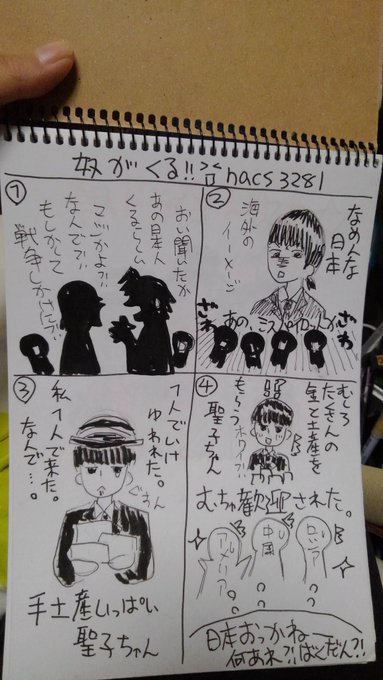 奴がくる!! nacs3281
①
おい聞いたか
あの日本人
くるらしい
マジかよ?!
なんで?!
もしかして
戦争しかけに?!
②
なめんな
日本
海外の
イメージ
ざわ
ざわ
あの、ミスパイロットが
③
1人でいけ
ゆわれた。
私1人で来た。
なんで…。
手土産いっぱい
聖子ちゃん
④
むしろ
たくさんの
金と土産を
もらう
聖子ちゃん
むちゃ歓迎された。
アメリカ
中国
ロシア
日本おっかねー
何あれ?!ばくだん?!